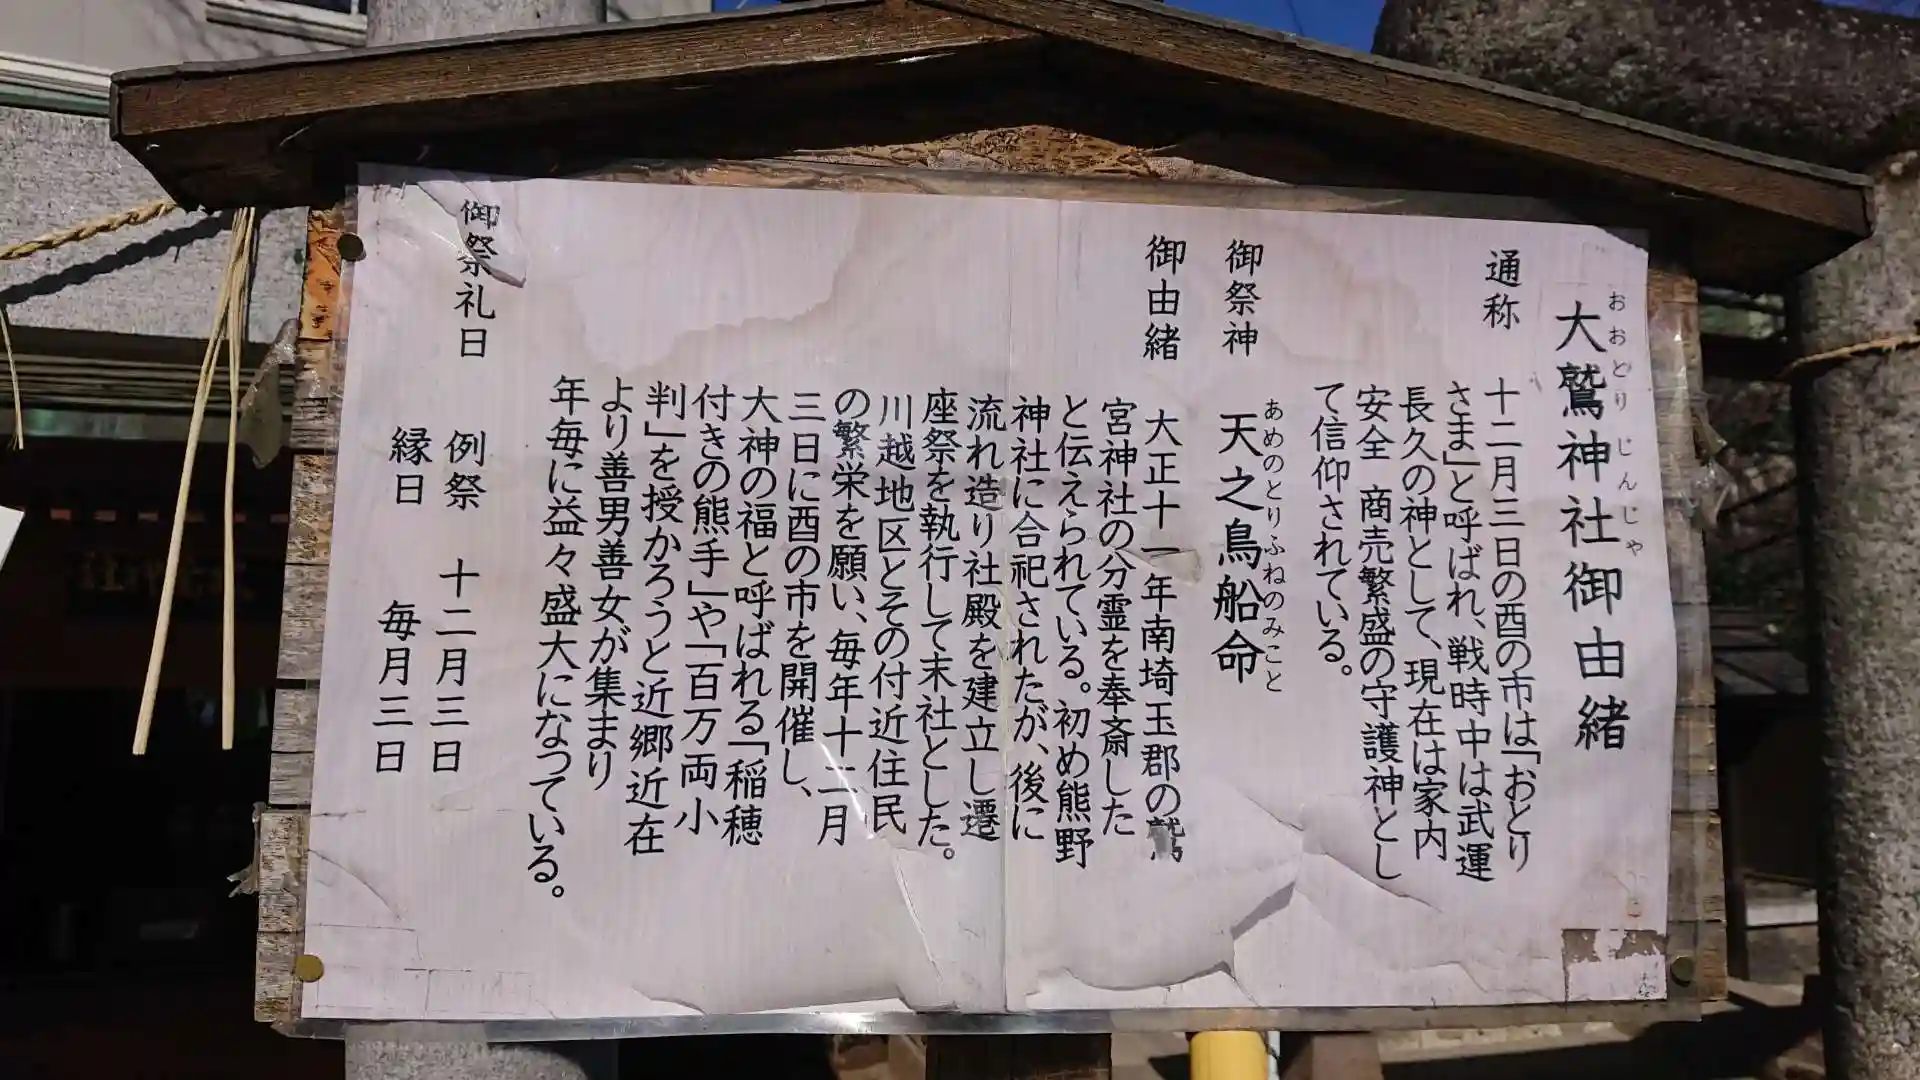 大鷲神社御由緒
おおとり じんじゃ
通称
十二月三日の酉の市は「おとり
さま」と呼ばれ、戦時中は武運
長久の神として、現在は家内
安全 商売繁盛の守護神とし
て信仰されている。
御祭神
天之鳥船命
あめのとりふねのみこと
御由緒
大正十一年南埼玉郡の鷲
宮神社の分霊を奉斎した
と伝えられている。初め熊野
神社に合祀されたが、後に
流れ造り社殿を建立し遷
座祭を執行して末社とした。
川越地区とその付近住民
の繁栄を願い、毎年十二月
三日に酉の市を開催し、
大神の福と呼ばれる「稲穂
付きの熊手」や「百万両小
判」を授かろうと近郷近在
より善男善女が集まり
年毎に益々盛大になっている。
御祭礼日
例祭 十二月三日
縁日 毎月三日